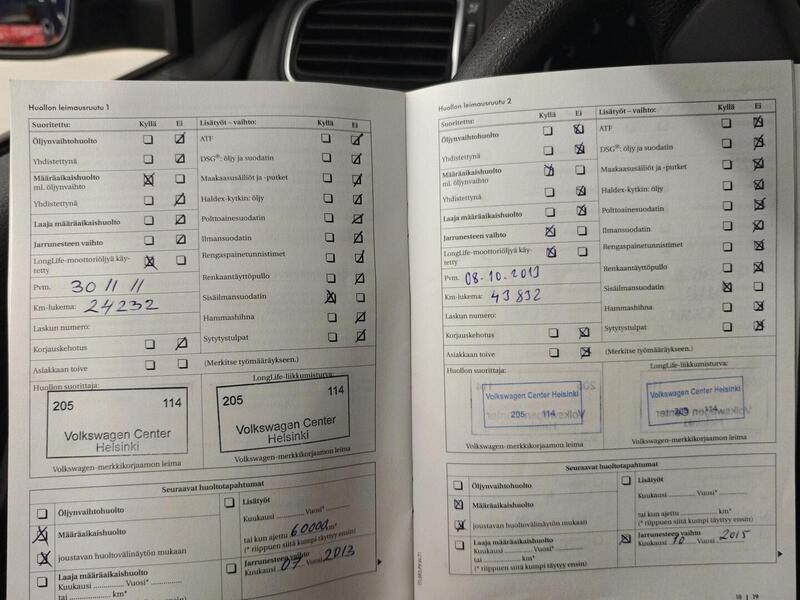 Huollon leimausruutu 1
Suoritettu: Kyllä Ei
Öljynvaihtohuolto
Yhdistettynä
Määräaikaishuolto
ml. öljynvaihto
Yhdistettynä
Laaja määräaikaishuolto
Jarrunesteen vaihto
LongLife-moottoriöljyä käy-
tetty
Pvm. 30 11 11
Km-lukema: 24232
Laskun numero:
Korjauskehotus
Asiakkaan toive
Lisätyöt – vaihto: Kyllä Ei
ATF
DSG®: öljy ja suodatin
Maakaasusäiliöt ja -putket
Haldex-kytkin: öljy
Polttoainesuodatin
Ilmansuodatin
Rengaspainetunnistimet
Renkaantäyttöpullo
Sisäilmansuodatin
Hammashihna
Sytytystulpat
(Merkitse työmääräykseen.)
Huollon suorittaja:
205 114
Volkswagen Center
Helsinki
Volkswagen-merkkikorjaamon leima
LongLife-liikkumisturva:
205 114
Volkswagen Center
Helsinki
Volkswagen-merkkikorjaamon leima
Seuraavat huoltotapahtumat
Öljynvaihtohuolto
Määräaikaishuolto
joustavan huoltovälinäytön mukaan
Laaja määräaikaishuolto
Kuukausi Vuosi*
tai km*
Lisätyöt
Kuukausi Vuosi*
tai kun ajettu 60000 km*
(* riippuen siitä kumpi täyttyy ensin)
Jarrunesteen vaihto
Kuukausi 07 Vuosi 2013
Huollon leimausruutu 2
Suoritettu: Kyllä Ei
Öljynvaihtohuolto
Yhdistettynä
Määräaikaishuolto
ml. öljynvaihto
Yhdistettynä
Laaja määräaikaishuolto
Jarrunesteen vaihto
LongLife-moottoriöljyä käy-
tetty
Pvm. 08.10.2013
Km-lukema: 43832
Laskun numero:
Korjauskehotus
Asiakkaan toive
Lisätyöt – vaihto: Kyllä Ei
ATF
DSG®: öljy ja suodatin
Maakaasusäiliöt ja -putket
Haldex-kytkin: öljy
Polttoainesuodatin
Ilmansuodatin
Rengaspainetunnistimet
Renkaantäyttöpullo
Sisäilmansuodatin
Hammashihna
Sytytystulpat
(Merkitse työmääräykseen.)
Huollon suorittaja:
Volkswagen Center Helsinki
205 114
Volkswagen-merkkikorjaamon leima
LongLife-liikkumisturva:
Volkswagen Center Helsinki
205 114
Volkswagen-merkkikorjaamon leima
Seuraavat huoltotapahtumat
Öljynvaihtohuolto
Määräaikaishuolto
joustavan huoltovälinäytön mukaan
Laaja määräaikaishuolto
Kuukausi Vuosi*
tai km*
(* riippuen siitä kumpi täyttyy ensin)
Lisätyöt
Kuukausi Vuosi*
tai kun ajettu km*
(* riippuen siitä kumpi täyttyy ensin)
Jarrunesteen vaihto
Kuukausi 10 Vuosi 2015
18 | 19